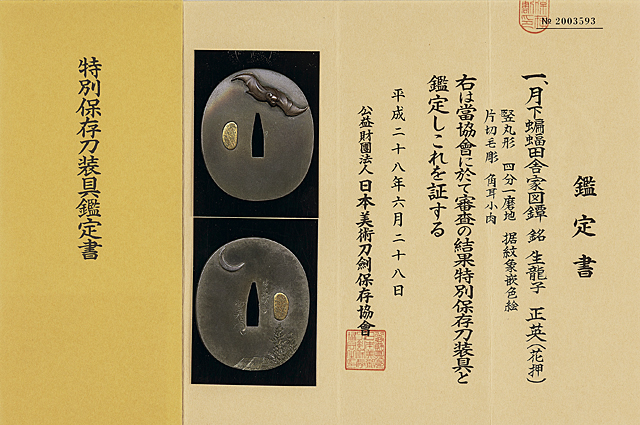 № 2003593
鑑定書
一、月下蝙蝠田舎家図鐔 銘 生龍子 正英(花押)
竪丸形 四分一磨地 据紋象嵌色絵
片切毛彫 角耳小肉
右は當協會に於て審査の結果特別保存刀装具と
鑑定しこれを証する
平成二十八年六月二十八日
公益財團法人 日本美術刀劍保存協會
特別保存刀装具鑑定書